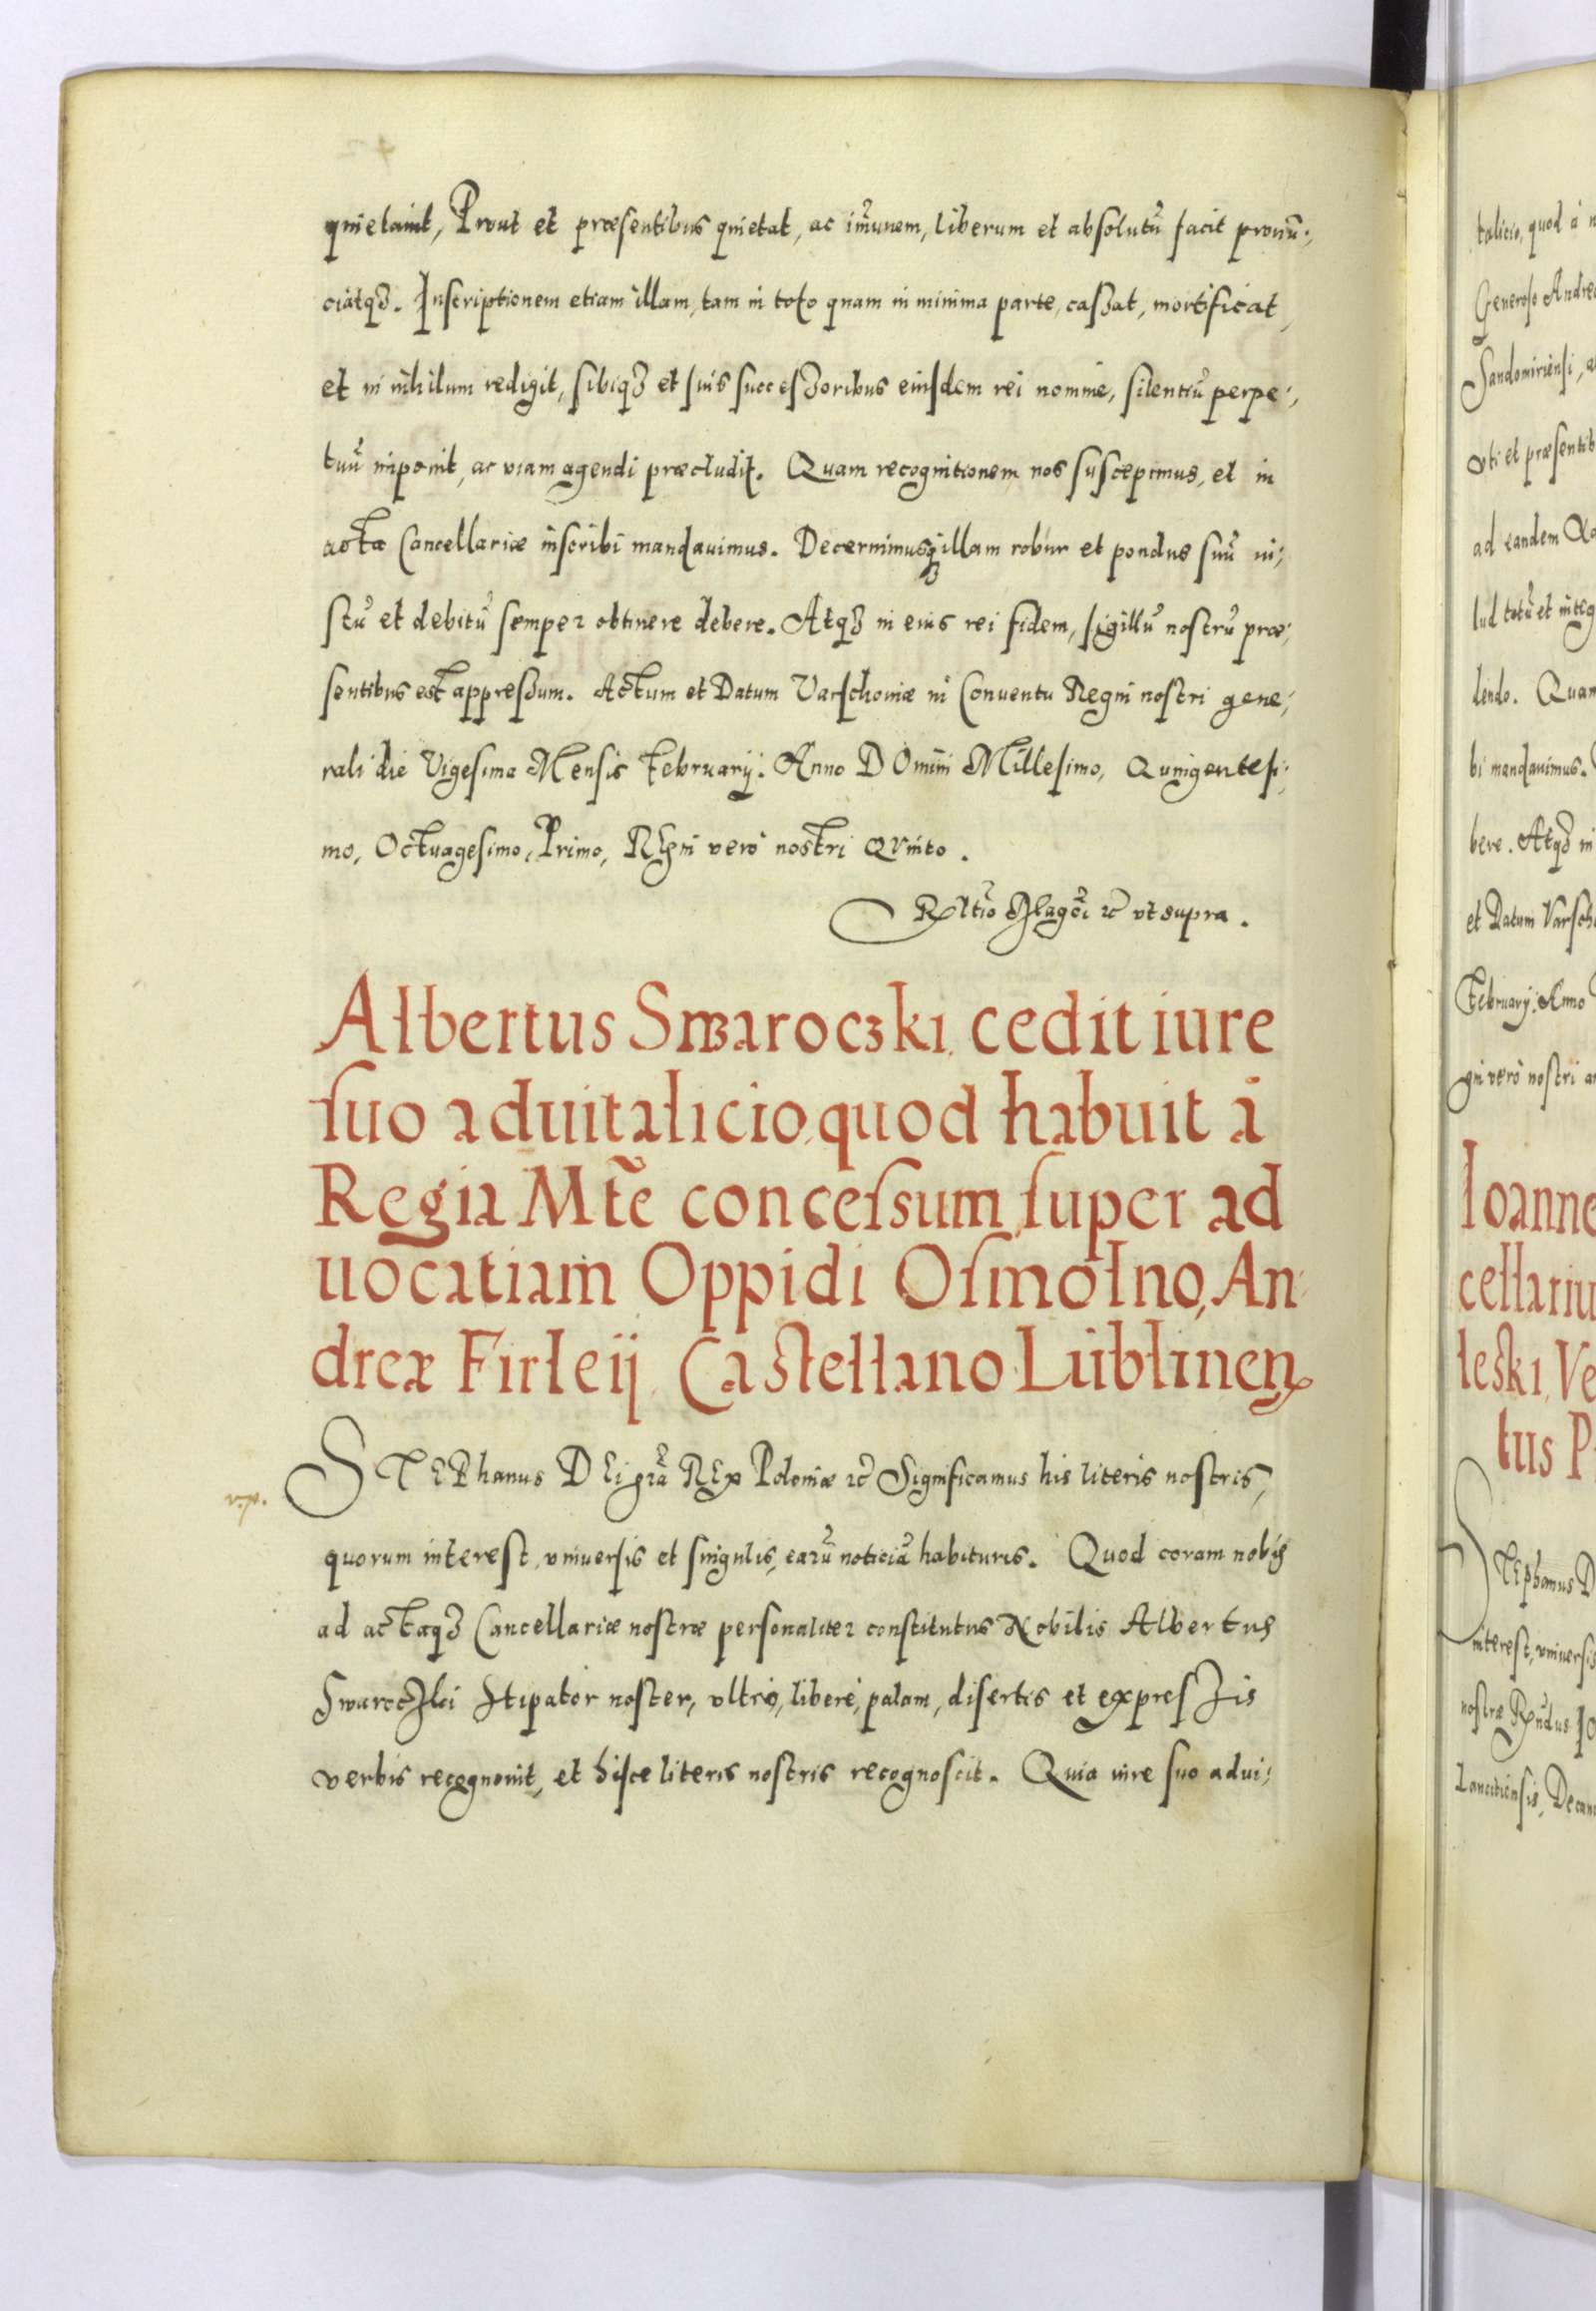 quietauit, Prout et præsentibus quietat, ac im̃unem, liberum et absolutũ facit pronũ:,
ciatqʒ. Inscriptionem etiam illam, tam in toto quam in minima parte, casʒat, mortificat,
et in nihilum redigit, sibiqʒ et suis succesʒoribus eiusdem rei nomine, silentiũ perpe:,
tuũ imponit, ac viam agendi præcludit. Quam recognitionem nos suscepimus, et in
acta Cancellariæ inscribi mandauimus. Decernimusqʒ illam robur et pondus suũ iu:,
stũ et debitũ semper obtinere debere. Atqʒ in eius rei fidem, sigillũ nostrũ præ:,
sentibus est appresʒum. Actum et Datum Varschoniæ in Conuentu Regni nostri gene:,
rali die Vigesima Mensis Februarij. Anno DOmini Millesimo, Quingentesi:,
mo, Octuagesimo, Primo, REgni verò nostri QVinto.
ut supra.
Albertus Swaroczki, cedit iure
suo aduitalicio, quod habuit à
Regia Mt̃e concessum, super ad
uocatiam Oppidi Osmolno, An:
dreæ Firleij, Castellano Lublinen̄
STEPhanus DEi gr̃a REx Poloniæ ꝛc̃ Significamus his literis nostris,
quorum interest, vniuersis et singulis, earũ noticiã habituris. Quod coram nobis
ad actaqʒ Cancellariæ nostræ personaliter constitutus Nobilis Albertus
Swaroczki Stipator noster, vltrò, liberè, palam, disertis et expresʒis
verbis recognouit, et hisce literis nostris recognoscit. Quia iure suo adui:,
talicio, quod à
Generoso Andre
Sandomiriensi,
vti et præsentib
ad eandem
lud totũ et integ
dendo. Quam
bi mandauimus.
bere. Atqʒ in
et Datum Varsch
Februarij. Anno
gni verò nostri
Ioanne
cellariu
leski, Ve
tus P
STEphanus D
interest, vniuersis
nostræ
Lancitiensis, Decan